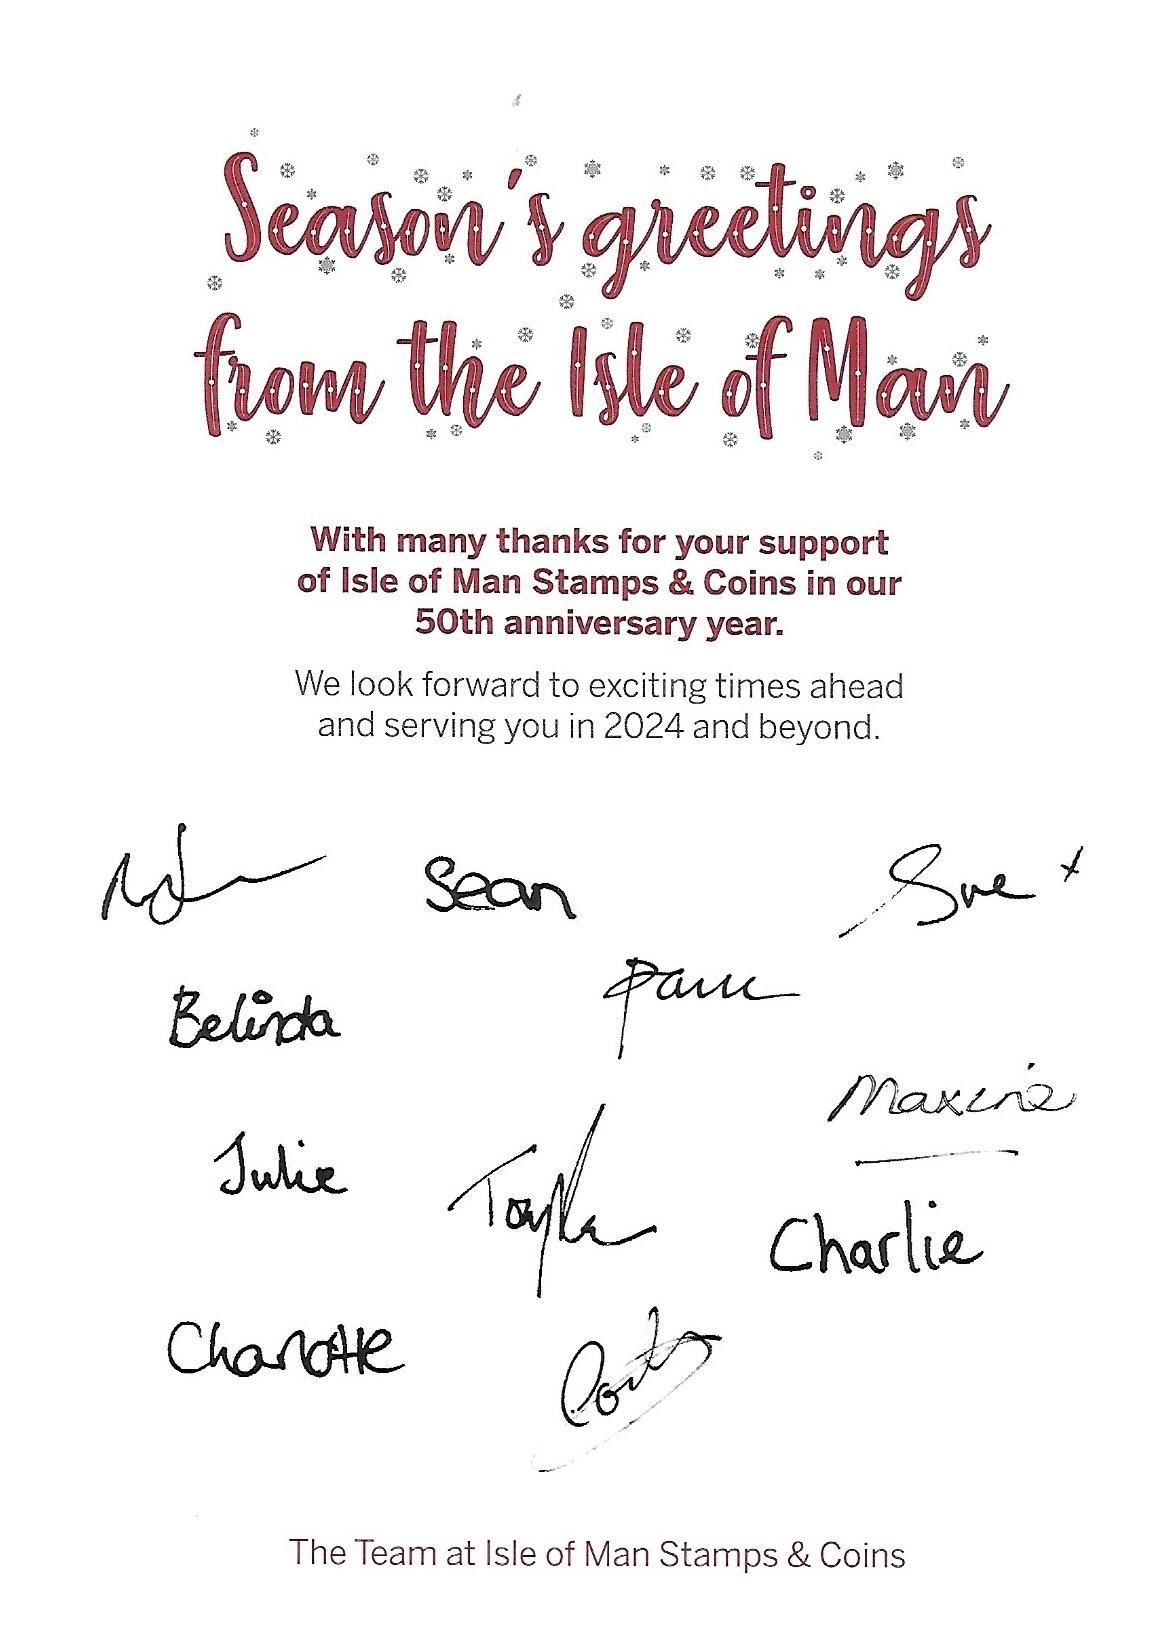 Season's greetings
from the Isle of Man
With many thanks for your support
of Isle of Man Stamps & Coins in our
50th anniversary year.
We look forward to exciting times ahead
and serving you in 2024 and beyond.
Sean
Sue x
Belinda
Pam
Maxine
Julie
Tayla
Charlie
Charlotte
The Team at Isle of Man Stamps & Coins